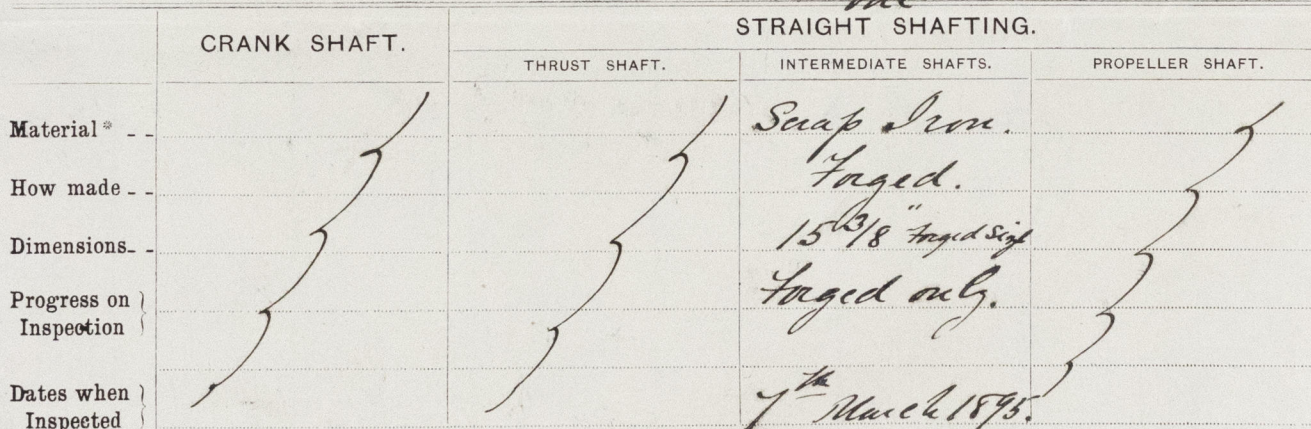 STRAIGHT SHAFTING.
CRANK SHAFT.
THRUST SHAFT. INTERMEDIATE SHAFTS. PROPELLER SHAFT.
Material* - - Scrap Iron.
How made - - Forged.
Dimensions - - 15 3/8" Forged Size
Progress on Inspection } Forged only.
Dates when Inspected } 7th March 1895.